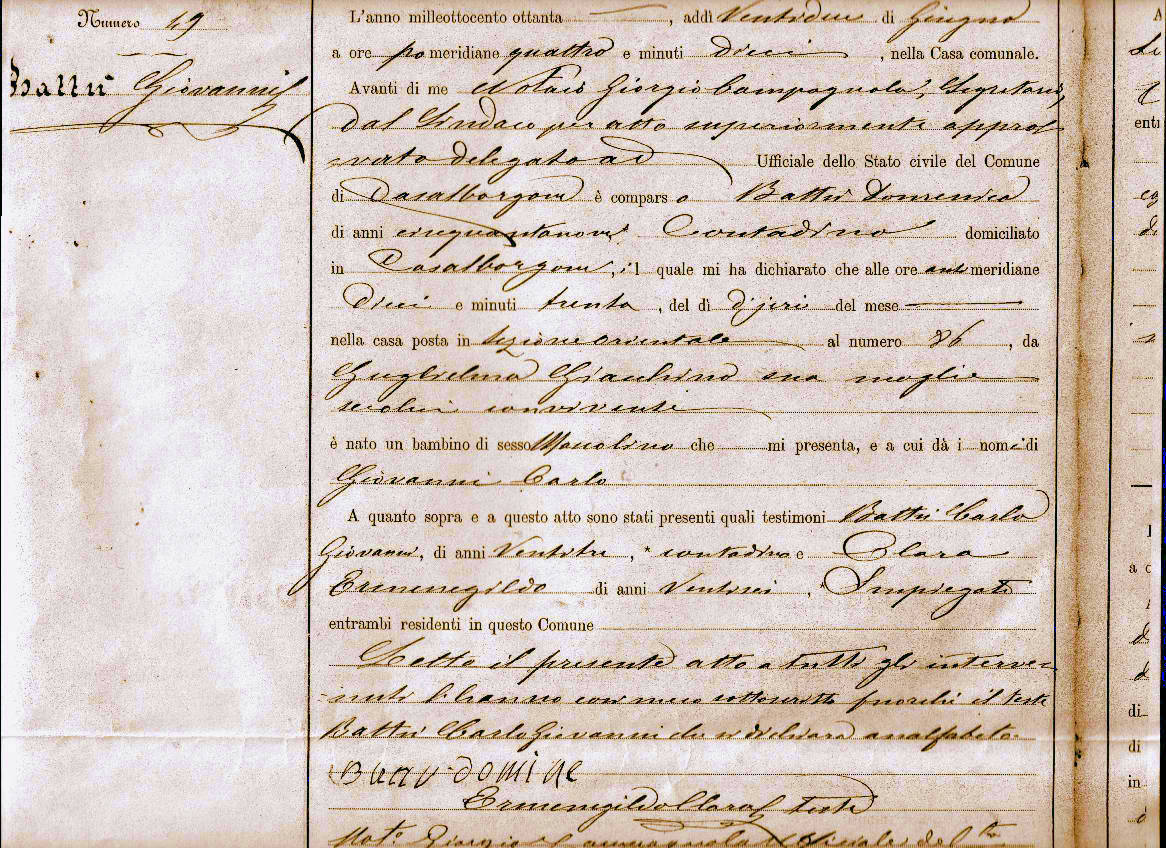 Numero 49
Battù Giovanni
L'anno milleottocento ottanta , addì Ventidue di Giugno
a ore pomeridiane quattro e minuti dieci , nella Casa comunale.
Avanti di me Notaio Giorgio Campagnola, Segretario,
dal Sindaco per atto superiormente appro-
vato delegato ad Ufficiale dello Stato civile del Comune
di Casalborgone è comparso Battù Domenico
di anni cinquantanove Contadino domiciliato
in Casalborgone, il quale mi ha dichiarato che alle ore antimeridiane
dieci e minuti trenta , del dì d'jeri del mese
nella casa posta in Sezione orientale al numero 86 , da
Guglielma Giacchino sua moglie
secolui convivente
è nato un bambino di sesso Mascolino che mi presenta, e a cui dà i nomi di
Giovanni Carlo
A quanto sopra e a questo atto sono stati presenti quali testimoni Battù Carlo
Giovanni, di anni Ventitre , contadino e Clara
Ermenegildo di anni Ventisei , Impiegato
entrambi residenti in questo Comune
Letto il presente atto a tutti gli interve-
nuti li hanno con meco sottoscritto fuorchè il teste
Battù Carlo Giovanni che si dichiara analfabeta.
Ermenegildo Clara teste
Not.o Giorgio Campagnola